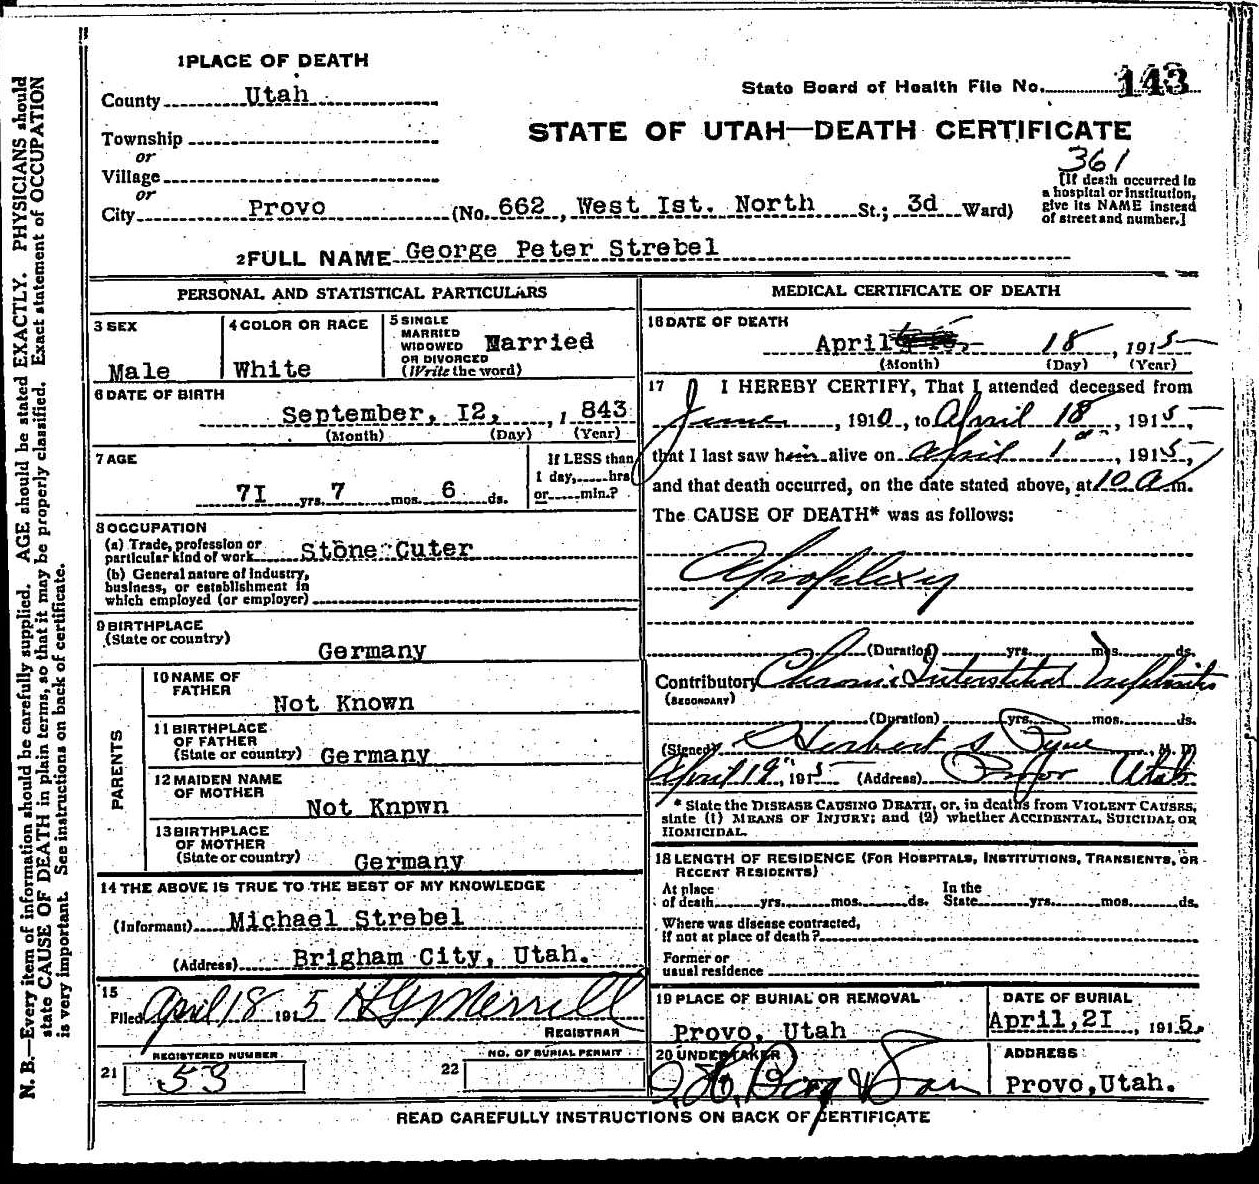 1 PLACE OF DEATH
County Utah
State Board of Health File No. 143
Township
or
STATE OF UTAH—DEATH CERTIFICATE
361
Village
or
City Provo (No. 662, West Ist. North St.; 3d Ward)
[If death occurred in
a hospital or institution,
give its NAME instead
of street and number.]
2 FULL NAME George Peter Strebel
PERSONAL AND STATISTICAL PARTICULARS
3 SEX
Male
4 COLOR OR RACE
White
5 SINGLE
MARRIED
WIDOWED
OR DIVORCED
(Write the word)
Married
6 DATE OF BIRTH
September, I2, , 1843
(Month) (Day) (Year)
7 AGE
7I yrs. 7 mos. 6 ds.
If LESS than
1 day, hrs
or min.?
8 OCCUPATION
(a) Trade, profession or
particular kind of work Stone Cuter
(b) General nature of industry,
business, or establishment in
which employed (or employer)
9 BIRTHPLACE
(State or country)
Germany
PARENTS
10 NAME OF
FATHER
Not Known
11 BIRTHPLACE
OF FATHER
(State or country) Germany
12 MAIDEN NAME
OF MOTHER
Not Knpwn
13 BIRTHPLACE
OF MOTHER
(State or country)
Germany
14 THE ABOVE IS TRUE TO THE BEST OF MY KNOWLEDGE
(Informant) Michael Strebel
(Address) Brigham City, Utah.
15
Filed April 18 1915 H G Merrell
REGISTRAR
21 REGISTERED NUMBER
53
22 NO. OF BURIAL PERMIT
MEDICAL CERTIFICATE OF DEATH
16 DATE OF DEATH
April 18, 1915
(Month) (Day) (Year)
17 I HEREBY CERTIFY, That I attended deceased from
June, 1910, to April 18, 1915,
that I last saw him alive on April 1st, 1915,
and that death occurred, on the date stated above, at 10 A m.
The CAUSE OF DEATH* was as follows:
Apoplexy
(Duration) yrs. mos. ds.
Contributory Chronic Interstitial Nephritis
(SECONDARY)
(Duration) yrs. mos. ds.
(Signed) Herbert S Pyne, M. D
April 19", 1915 (Address) Provo Utah
* State the DISEASE CAUSING DEATH, or, in deaths from VIOLENT CAUSES,
state (1) MEANS OF INJURY; and (2) whether ACCIDENTAL, SUICIDAL OR
HOMICIDAL.
18 LENGTH OF RESIDENCE (FOR HOSPITALS, INSTITUTIONS, TRANSIENTS, OR
RECENT RESIDENTS)
At place
of death yrs. mos. ds.
In the
State yrs. mos. ds.
Where was disease contracted,
if not at place of death?
Former or
usual residence
19 PLACE OF BURIAL OR REMOVAL
Provo, Utah
DATE OF BURIAL
April, 2I, 1915.
20 UNDERTAKER
Berg & Son
ADDRESS
Provo, Utah.
READ CAREFULLY INSTRUCTIONS ON BACK OF CERTIFICATE
N. B.—Every item of information should be carefully supplied. AGE should be stated EXACTLY. PHYSICIANS should
state CAUSE OF DEATH in plain terms, so that it may be properly classified. Exact statement of OCCUPATION
is very important. See instructions on back of certificate.